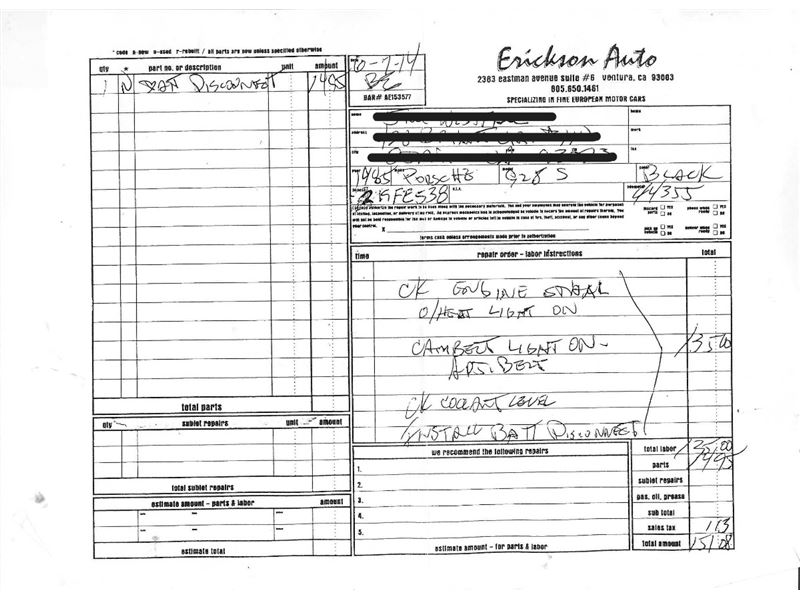 * code n-new u-used r-rebuilt / all parts are new unless specified otherwise
qty * part no. or description unit amount
1 N BATT DISCONNECT 1495
total parts
qty sublet repairs unit amount
total sublet repairs
estimate amount - parts & labor amount
estimate total
10-7-14
BAR# AE153577
Erickson Auto
2363 eastman avenue suite #6 ventura, ca 93003
805.650.1461
SPECIALIZING IN FINE EUROPEAN MOTOR CARS
name
home
address
work
city
fax
1985 PORSCHE 928 S BLACK
2GFE538
44355
terms cash unless arrangements made prior to authorization
time repair order - labor instructions total
CK ENGINE STALL
O/HEAT LIGHT ON
CAMBELT LIGHT ON-
ADJ. BELT
135.00
CK COOLANT LEVEL
INSTALL BATT DISCONNECT
we recommend the following repairs
1.
2.
3.
4.
5.
estimate amount - for parts & labor
total labor
parts 1495
sublet repairs
gas, oil, grease
sub total
sales tax 113
total amount 151 08